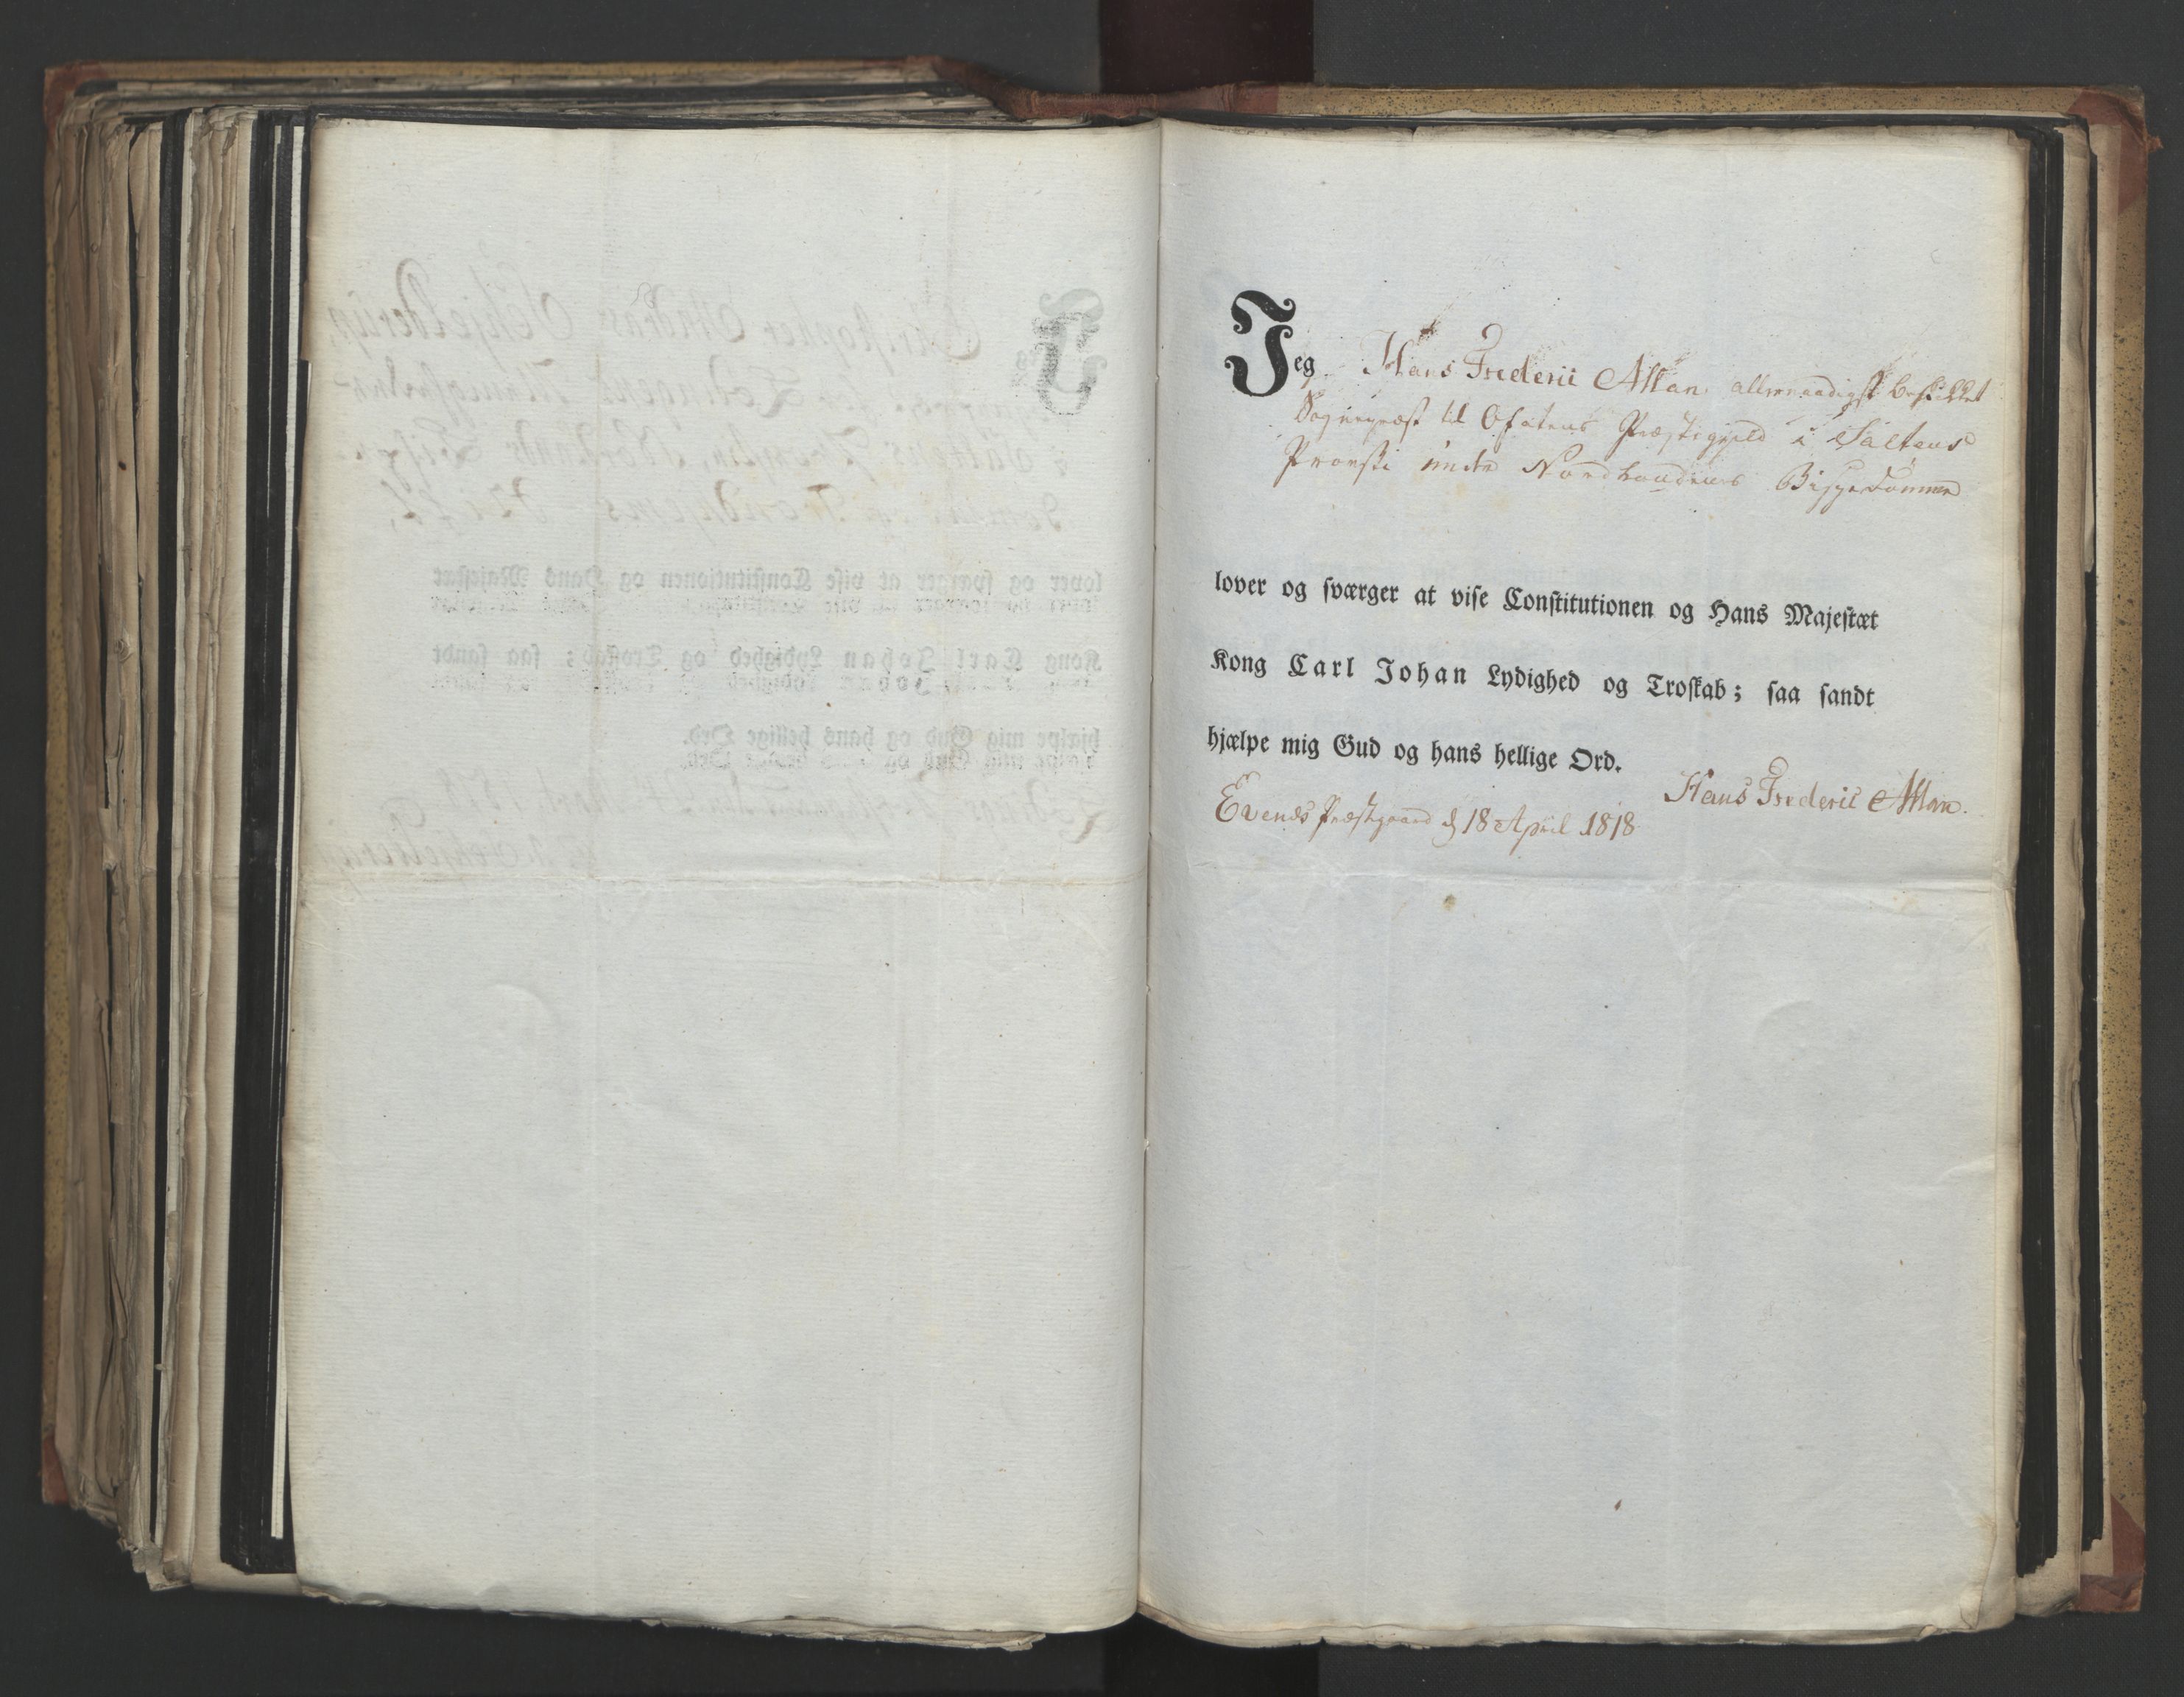 Jeg Hans Frederic Allan allernaadigst beskikket
Sognepræst til Ofotens Præstegield i Saltens
Provsti under Nordlandenes Bispedømme
lover og sværger at vise Constitutionen og Hans Majestæt
Kong Carl Johan Lydighed og Troskab; saa sandt
hjælpe mig Gud og hans hellige Ord.
Hans Frederic Allan.
Evenæs Præstegaard d 18 April 1818